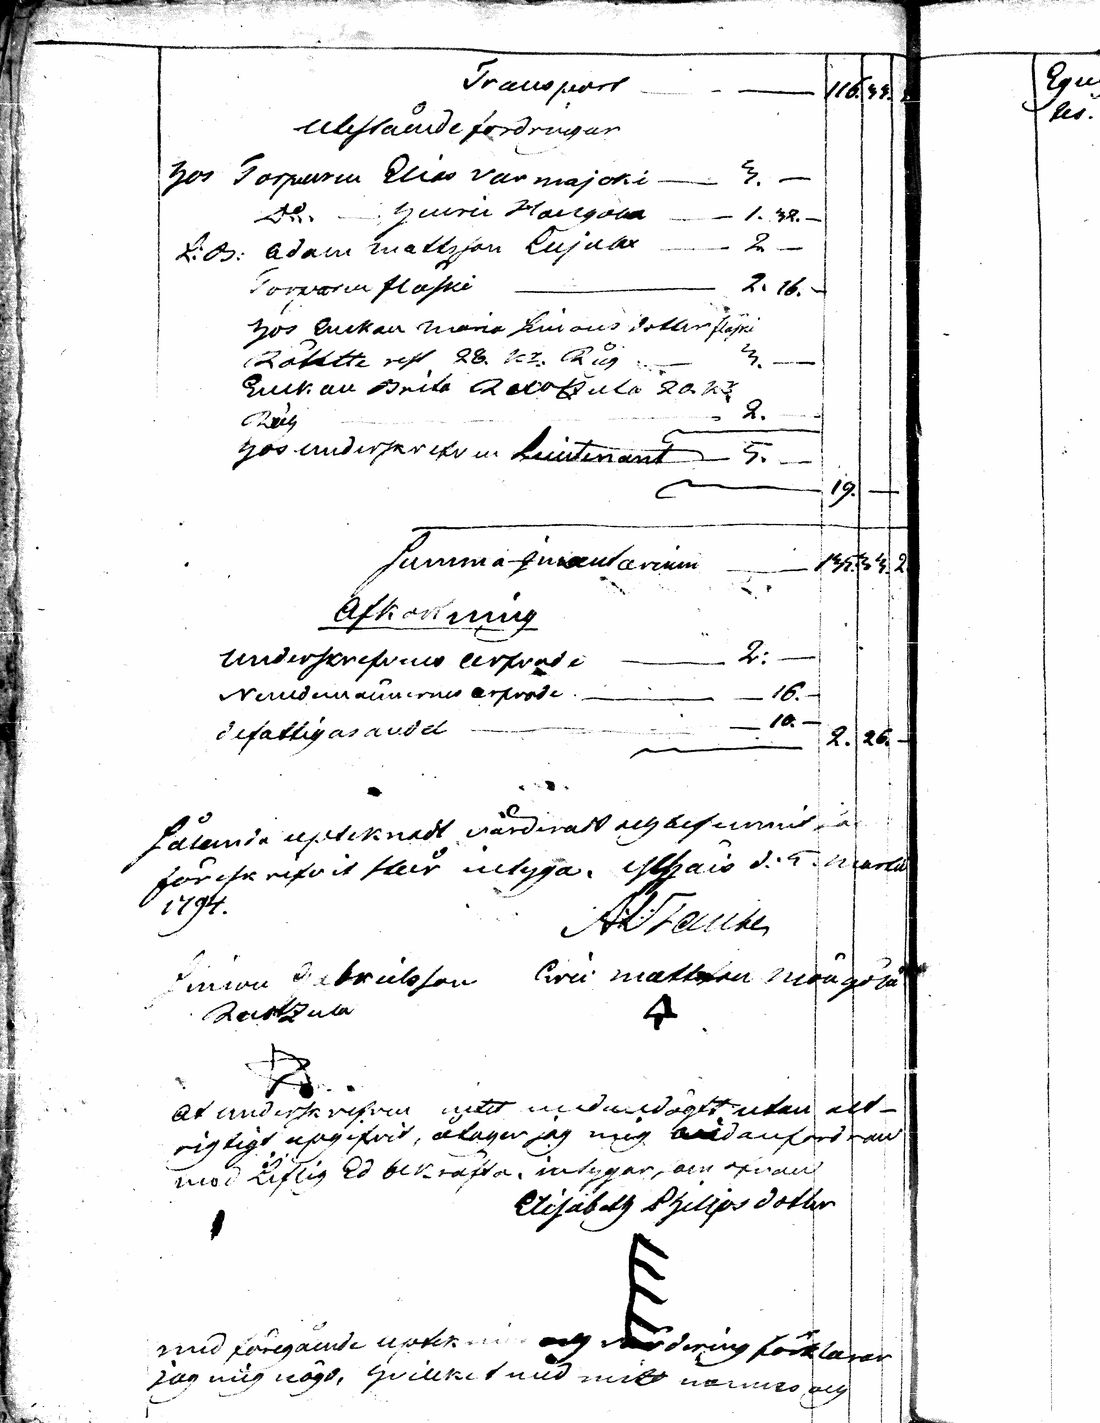 Transport — 116. 33.
Utestående fordringar
hos Torparen Elias Varmajoki — 3. —
Do. — Henric Mangola — 1. 32. —
L: B: Adam Mattsson Lujala — 2 —
Torparen — 2. 16. —
hos Enckan Maria Simons dotter
Rötttte rest 28. kr. Råg — 3. —
Enckan Brita Rautzula 20. kr
Råg — 2. —
hos underskrefven Lieutenant — 5. —
19. —
Summa Inventarium — 135. 33. 2
Afkortning
Underskrefvens arfvode — 2: —
Nemdemännernes arfvode — 16. —
de fattigas andel — 10. —
2. 26. —
Sålunda uptecknadt, värderadt och befunnit
föreskrifvit står intyga. d. 5. Martii
1794.
Taube
Simon Gabrielsson Eric Mattsson Mångolä
Rautzula
At underskrefven intet undandöljt utan alt
rigtigt upgifvit, åtager jag mig vid anfordran
med Liflig Ed bekräfta, intygar
Elisabeth Philipsdotter
med föregående uptekning och värdering förklarar
jag mig nögd, hvilket med mitt namns och